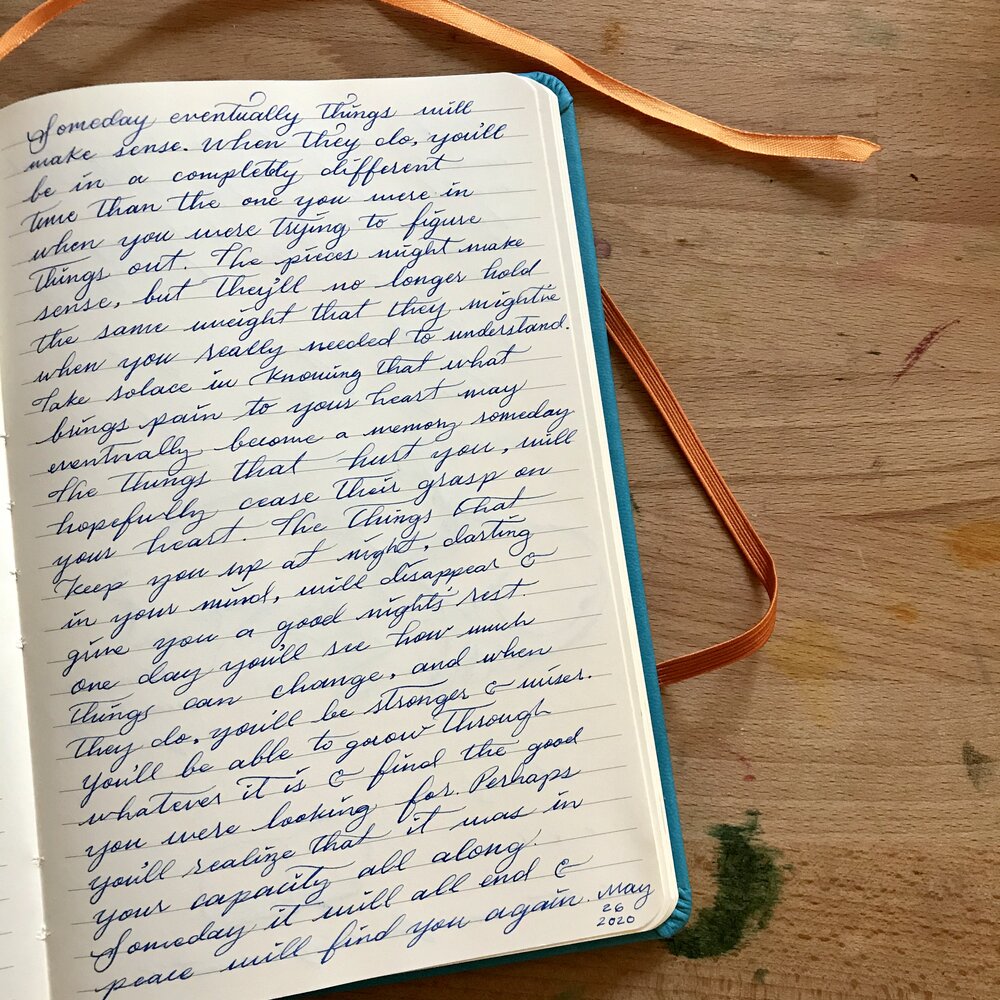 Someday eventually things will
make sense. When they do, you'll
be in a completly different
time than the one you were in
when you were trying to figure
things out. The pieces might make
sense, but they'll no longer hold
the same weight that they might've
when you really needed to understand.
Take solace in knowing that what
brings pain to your heart may
eventually become a memory someday.
The things that hurt you, will
hopefully cease their grasp on
your heart. The things that
keep you up at night, darting
in your mind, will disappear &
give you a good nights' rest.
One day you'll see how much
things can change, and when
they do, you'll be stronger & wiser.
You'll be able to grow through
whatever it is & find the good
you were looking for. Perhaps
you'll realize that it was in
your capacity all along.
Someday it will all end &
peace will find you again.
May
26
2020